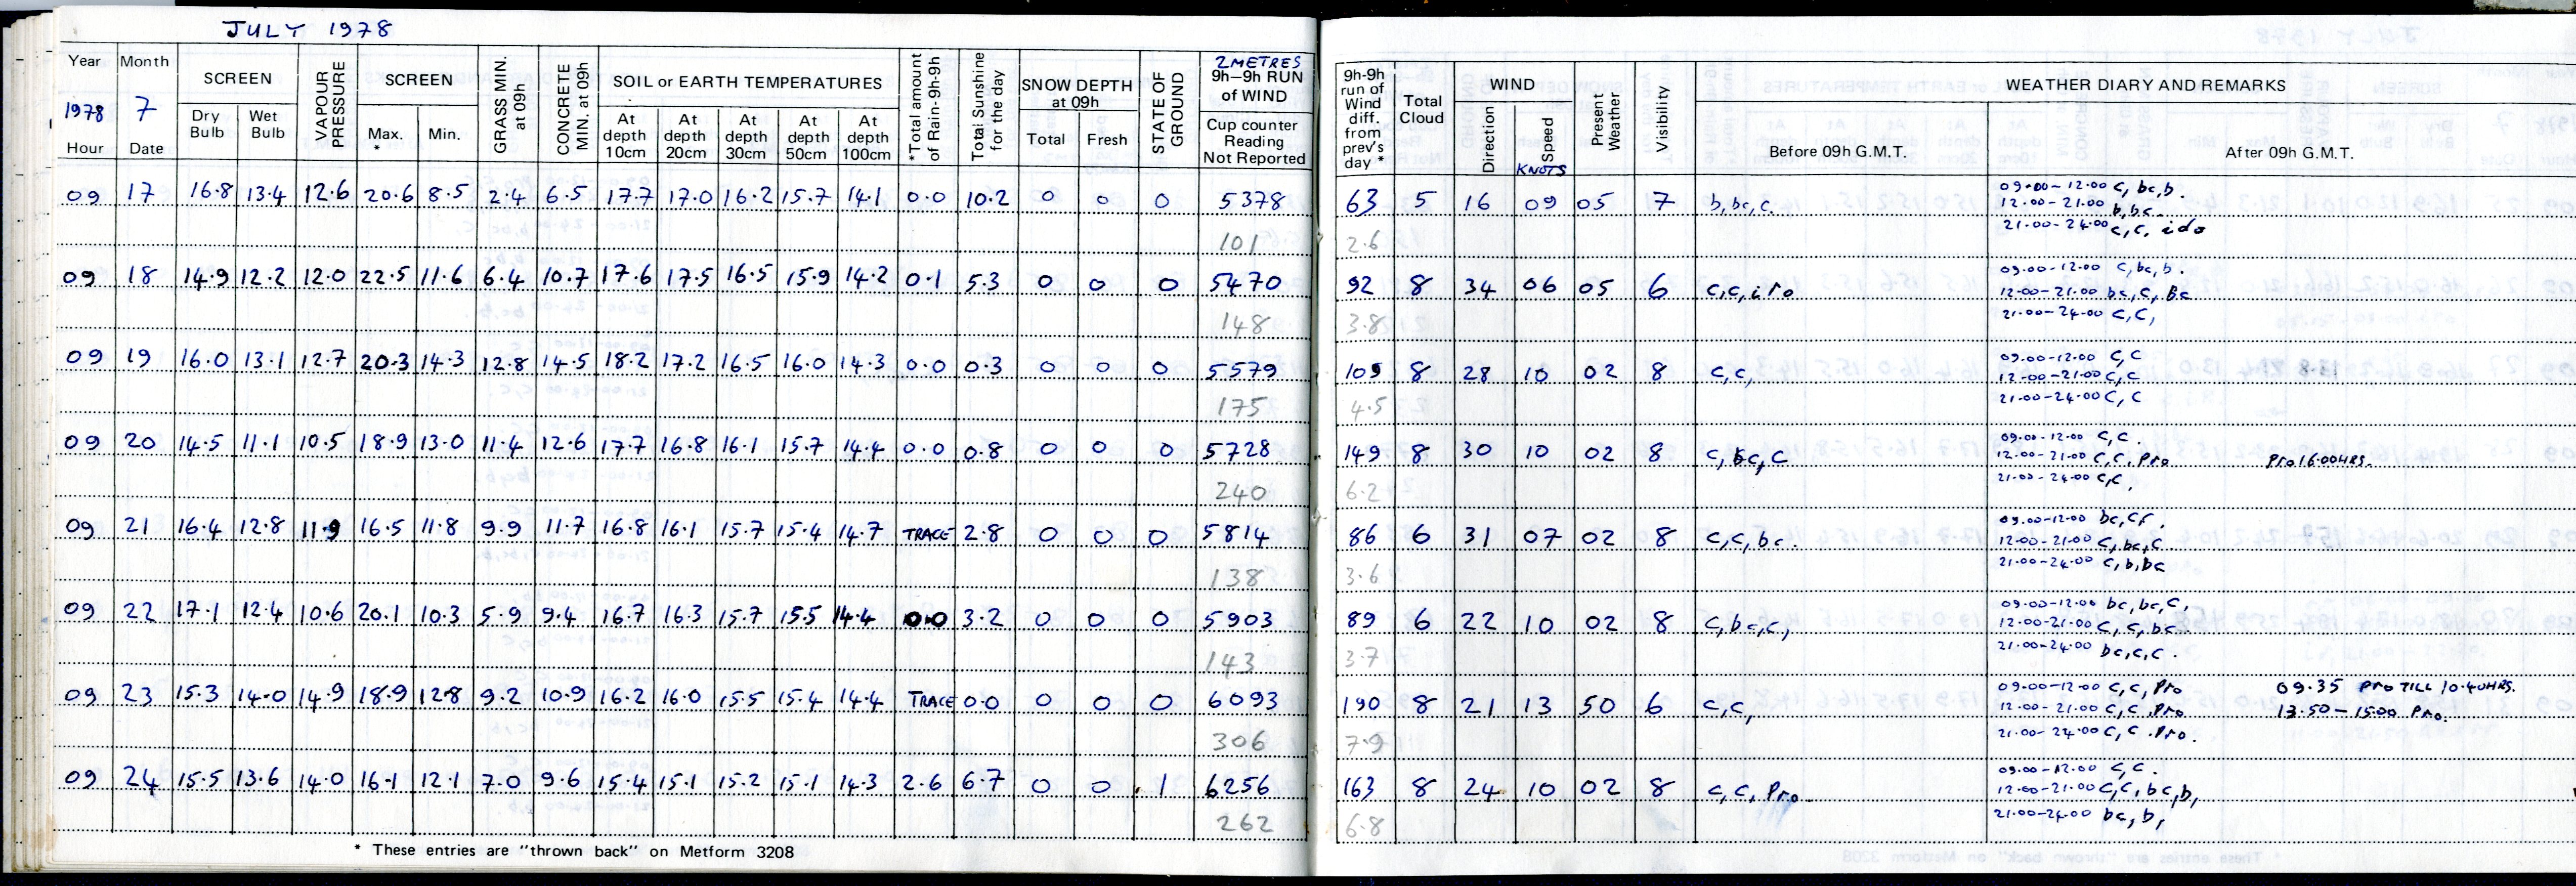 JULY 1978
Year Month SCREEN VAPOUR PRESSURE SCREEN GRASS MIN. at 09h CONCRETE MIN. at 09h SOIL or EARTH TEMPERATURES *Total amount of Rain-9h-9h Total Sunshine for the day SNOW DEPTH at 09h STATE OF GROUND 2 METRES 9h–9h RUN of WIND
1978 7 Dry Bulb Wet Bulb Max. * Min. At depth 10cm At depth 20cm At depth 30cm At depth 50cm At depth 100cm Total Fresh Cup counter Reading Not Reported
Hour Date
09 17 16.8 13.4 12.6 20.6 8.5 2.4 6.5 17.7 17.0 16.2 15.7 14.1 0.0 10.2 0 0 0 5378
101
09 18 14.9 12.2 12.0 22.5 11.6 6.4 10.7 17.6 17.5 16.5 15.9 14.2 0.1 5.3 0 0 0 5470
148
09 19 16.0 13.1 12.7 20.3 14.3 12.8 14.5 18.2 17.2 16.5 16.0 14.3 0.0 0.3 0 0 0 5579
175
09 20 14.5 11.1 10.5 18.9 13.0 11.4 12.6 17.7 16.8 16.1 15.7 14.4 0.0 0.8 0 0 0 5728
240
09 21 16.4 12.8 11.9 16.5 11.8 9.9 11.7 16.8 16.1 15.7 15.4 14.7 TRACE 2.8 0 0 0 5814
138
09 22 17.1 12.4 10.6 20.1 10.3 5.9 9.4 16.7 16.3 15.7 15.5 14.4 0.0 3.2 0 0 0 5903
143
09 23 15.3 14.0 14.9 18.9 12.8 9.2 10.9 16.2 16.0 15.5 15.4 14.4 TRACE 0.0 0 0 0 6093
306
09 24 15.5 13.6 14.0 16.1 12.1 7.0 9.6 15.4 15.1 15.2 15.1 14.3 2.6 6.7 0 0 1 6256
262
* These entries are "thrown back" on Metform 3208
9h-9h run of Wind diff. from prev's day * Total Cloud WIND Present Weather Visibility WEATHER DIARY AND REMARKS
Direction Speed KNOTS Before 09h G.M.T. After 09h G.M.T.
63 5 16 09 05 7 b, bc, c. 09.00–12.00 c, bc, b.
12.00–21.00 b, bc
2.6 21.00–24.00 c, c, ido
92 8 34 06 05 6 c, c, iro 09.00–12.00 c, bc, b.
12.00–21.00 bc, c, bc
3.8 21.00–24.00 c, c,
109 8 28 10 02 8 c, c, 09.00–12.00 c, c
12.00–21.00 c, c
4.5 21.00–24.00 c, c
149 8 30 10 02 8 c, bc, c 09.00–12.00 c, c.
12.00–21.00 c, c, Pro Pro 16.00HRS.
6.2 21.00–24.00 c, c,
86 6 31 07 02 8 c, c, bc. 09.00–12.00 bc,
12.00–21.00 c, bc, c
3.6 21.00–24.00 c, b, bc
89 6 22 10 02 8 c, bc, c, 09.00–12.00 bc, bc, c,
12.00–21.00 c, c, bc.
3.7 21.00–24.00 bc, c, c.
190 8 21 13 50 6 c, c, 09.00–12.00 c, c, Pro 09.35 Pro TILL 10.40HRS.
12.00–21.00 c, c, Pro 13.50–15.00 Pro.
7.9 21.00–24.00 c, c. Pro.
163 8 24 10 02 8 c, c, Pro 09.00–12.00 c, c.
12.00–21.00 c, c, bc, b,
6.8 21.00–24.00 bc, b,